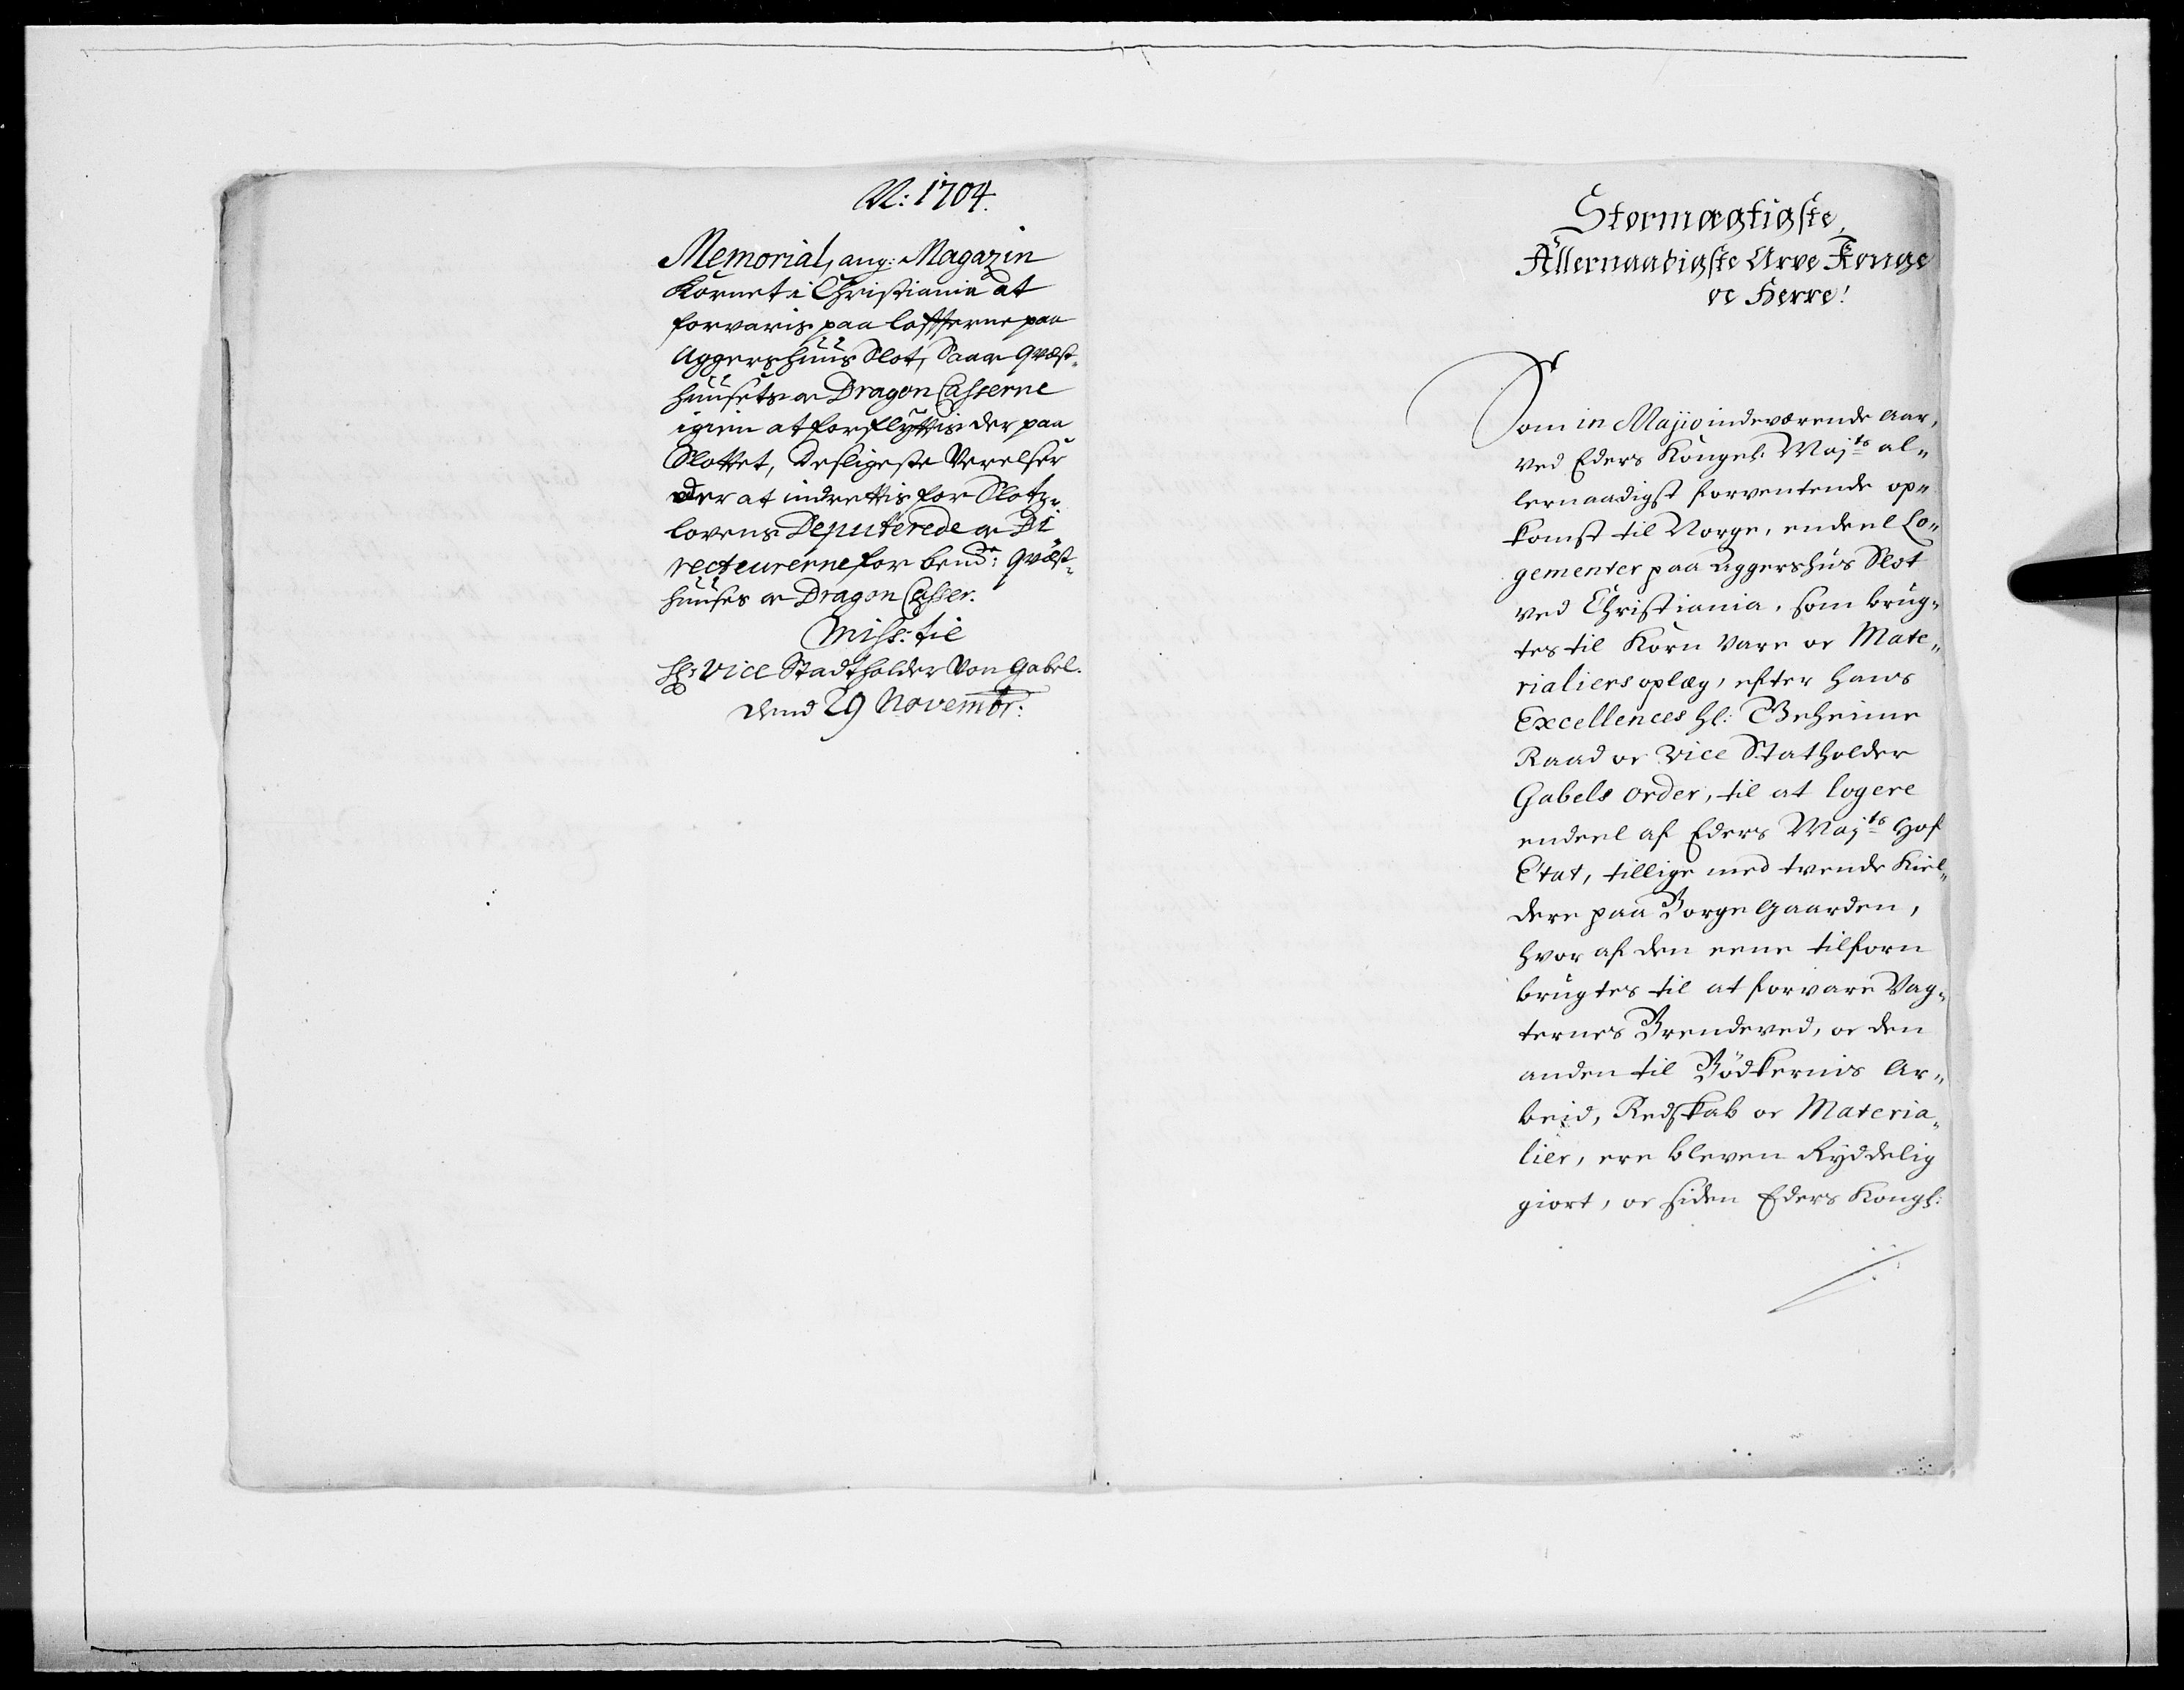 A: 1704.
Memorial, ang: Magazin
Kornet i Christiania at
forvaris paa lofterne paa
Aggershuus Slot, Saa og Qvæst-
huusets og Dragon Casserne
igien at forflyttis der paa
Slottet, Desligeste Verelser
der at indrettis for Slotz-
lovens Deputerede og Di
recteurerne for bemte: Qvæst-
huuses og Dragon Casser.
Miss: til
Hr: Vice Stadtholder Von Gabel.
Dend 29 Novembr:
Stormægtigste,
Allernaadigste Arve Konge
oc Herre!
Som in Majio indeværende Aar,
ved Eders Kongel: Majts al-
lernaadigst forventende op-
komst til Norge, endeel Lo-
gementer paa Aggershus Slot
ved Christiania, som brug-
tes til Korn Vare oc Mate-
rialiers oplæg, efter Hans
Excellences Hl: Geheime
Raad oc Vice Statholder
Gabels order, til at logere
endeel af Eders Majts Hof
Etat, tillige med tvende Kiel-
dere paa Borge Gaarden,
hvor af den eene tilforn
brugtes til at forvare Vag-
ternes Brendeved, oc den
anden til Bödkernis Ar-
beid, Redskab oc Materia-
lier, ere bleven Ryddelig
giort, oc siden Eders Kongl: